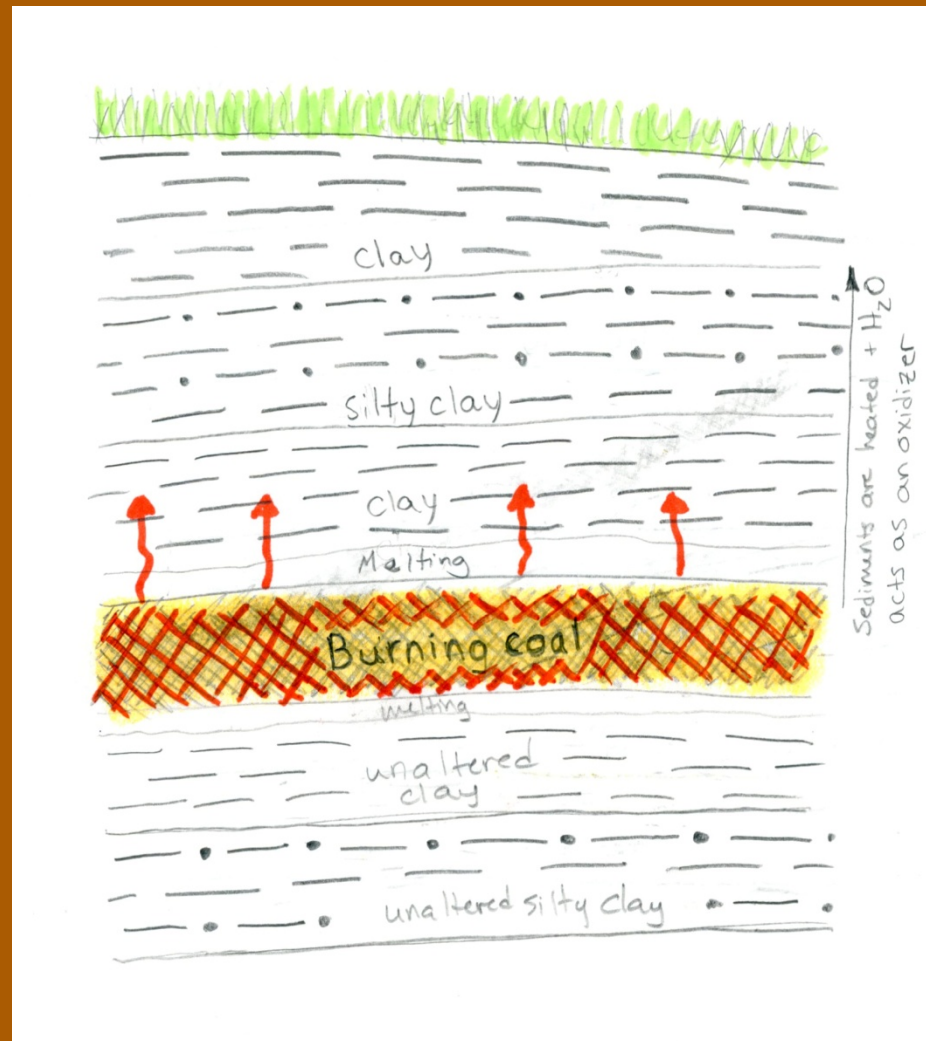 clay
silty clay
clay
Melting
Burning coal
melting
unaltered
clay
unaltered silty clay
Sediments are heated + H₂O
acts as an oxidizer